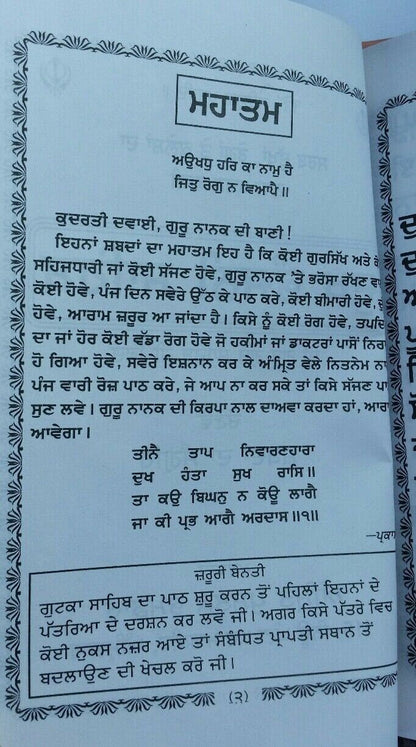 ਮਹਾਤਮ
ਅਉਖਧੁ ਹਰਿ ਕਾ ਨਾਮੁ ਹੈ
ਜਿਤੁ ਰੋਗੁ ਨ ਵਿਆਪੈ॥
ਕੁਦਰਤੀ ਦਵਾਈ, ਗੁਰੂ ਨਾਨਕ ਦੀ ਬਾਣੀ !
ਇਹਨਾਂ ਸ਼ਬਦਾਂ ਦਾ ਮਹਾਤਮ ਇਹ ਹੈ ਕਿ ਕੋਈ ਗੁਰਸਿੱਖ ਅਤੇ
ਸਹਿਜਧਾਰੀ ਜਾਂ ਕੋਈ ਸੱਜਣ ਹੋਵੇ, ਗੁਰੂ ਨਾਨਕ 'ਤੇ ਭਰੋਸਾ ਰੱਖਣ
ਕੋਈ ਹੋਵੇ, ਪੰਜ ਦਿਨ ਸਵੇਰੇ ਉੱਠ ਕੇ ਪਾਠ ਕਰੇ, ਕੋਈ ਬੀਮਾਰੀ ਹੋਵੇ,
ਹੋਵੇ, ਆਰਾਮ ਜ਼ਰੂਰ ਆ ਜਾਂਦਾ ਹੈ। ਕਿਸੇ ਨੂੰ ਕੋਈ ਰੋਗ ਹੋਵੇ,
ਦਾ ਜਾਂ ਹੋਰ ਕੋਈ ਵੱਡਾ ਰੋਗ ਹੋਵੇ ਜੋ ਹਕੀਮਾਂ ਜਾਂ ਡਾਕਟਰਾਂ ਪਾਸੋਂ
ਹੋ ਗਿਆ ਹੋਵੇ, ਸਵੇਰੇ ਇਸ਼ਨਾਨ ਕਰ ਕੇ ਅੰਮ੍ਰਿਤ ਵੇਲੇ ਨਿਤਨੇਮ
ਪੰਜ ਵਾਰੀ ਰੋਜ਼ ਪਾਠ ਕਰੇ, ਜੇ ਆਪ ਨਾ ਕਰ ਸਕੇ ਤਾਂ ਕਿਸੇ ਸੱਜਣ
ਸੁਣ ਲਵੇ। ਗੁਰੂ ਨਾਨਕ ਦੀ ਕਿਰਪਾ ਨਾਲ ਦਾਅਵਾ ਕਰਦਾ ਹਾਂ,
ਆਵੇਗਾ।
ਤੀਨੈ ਤਾਪ ਨਿਵਾਰਣਹਾਰਾ
ਦੁਖ ਹੰਤਾ ਸੁਖ ਰਾਸਿ॥
ਤਾ ਕਉ ਬਿਘਨੁ ਨ ਕੋਊ ਲਾਗੈ
ਜਾ ਕੀ ਪ੍ਰਭ ਆਗੈ ਅਰਦਾਸ॥੧॥
ਜ਼ਰੂਰੀ ਬੇਨਤੀ
ਗੁਟਕਾ ਸਾਹਿਬ ਦਾ ਪਾਠ ਸ਼ੁਰੂ ਕਰਨ ਤੋਂ ਪਹਿਲਾਂ ਇਹਨਾਂ ਦੇ
ਪੱਤਰਿਆ ਦੇ ਦਰਸ਼ਨ ਕਰ ਲਵੋ ਜੀ। ਅਗਰ ਕਿਸੇ ਪੱਤਰੇ ਵਿਚ
ਕੋਈ ਨੁਕਸ ਨਜ਼ਰ ਆਏ ਤਾਂ ਸੰਬੰਧਿਤ ਪ੍ਰਾਪਤੀ ਸਥਾਨ ਤੋਂ
ਬਦਲਾਉਣ ਦੀ ਖੇਚਲ ਕਰੋ ਜੀ।
(੨)